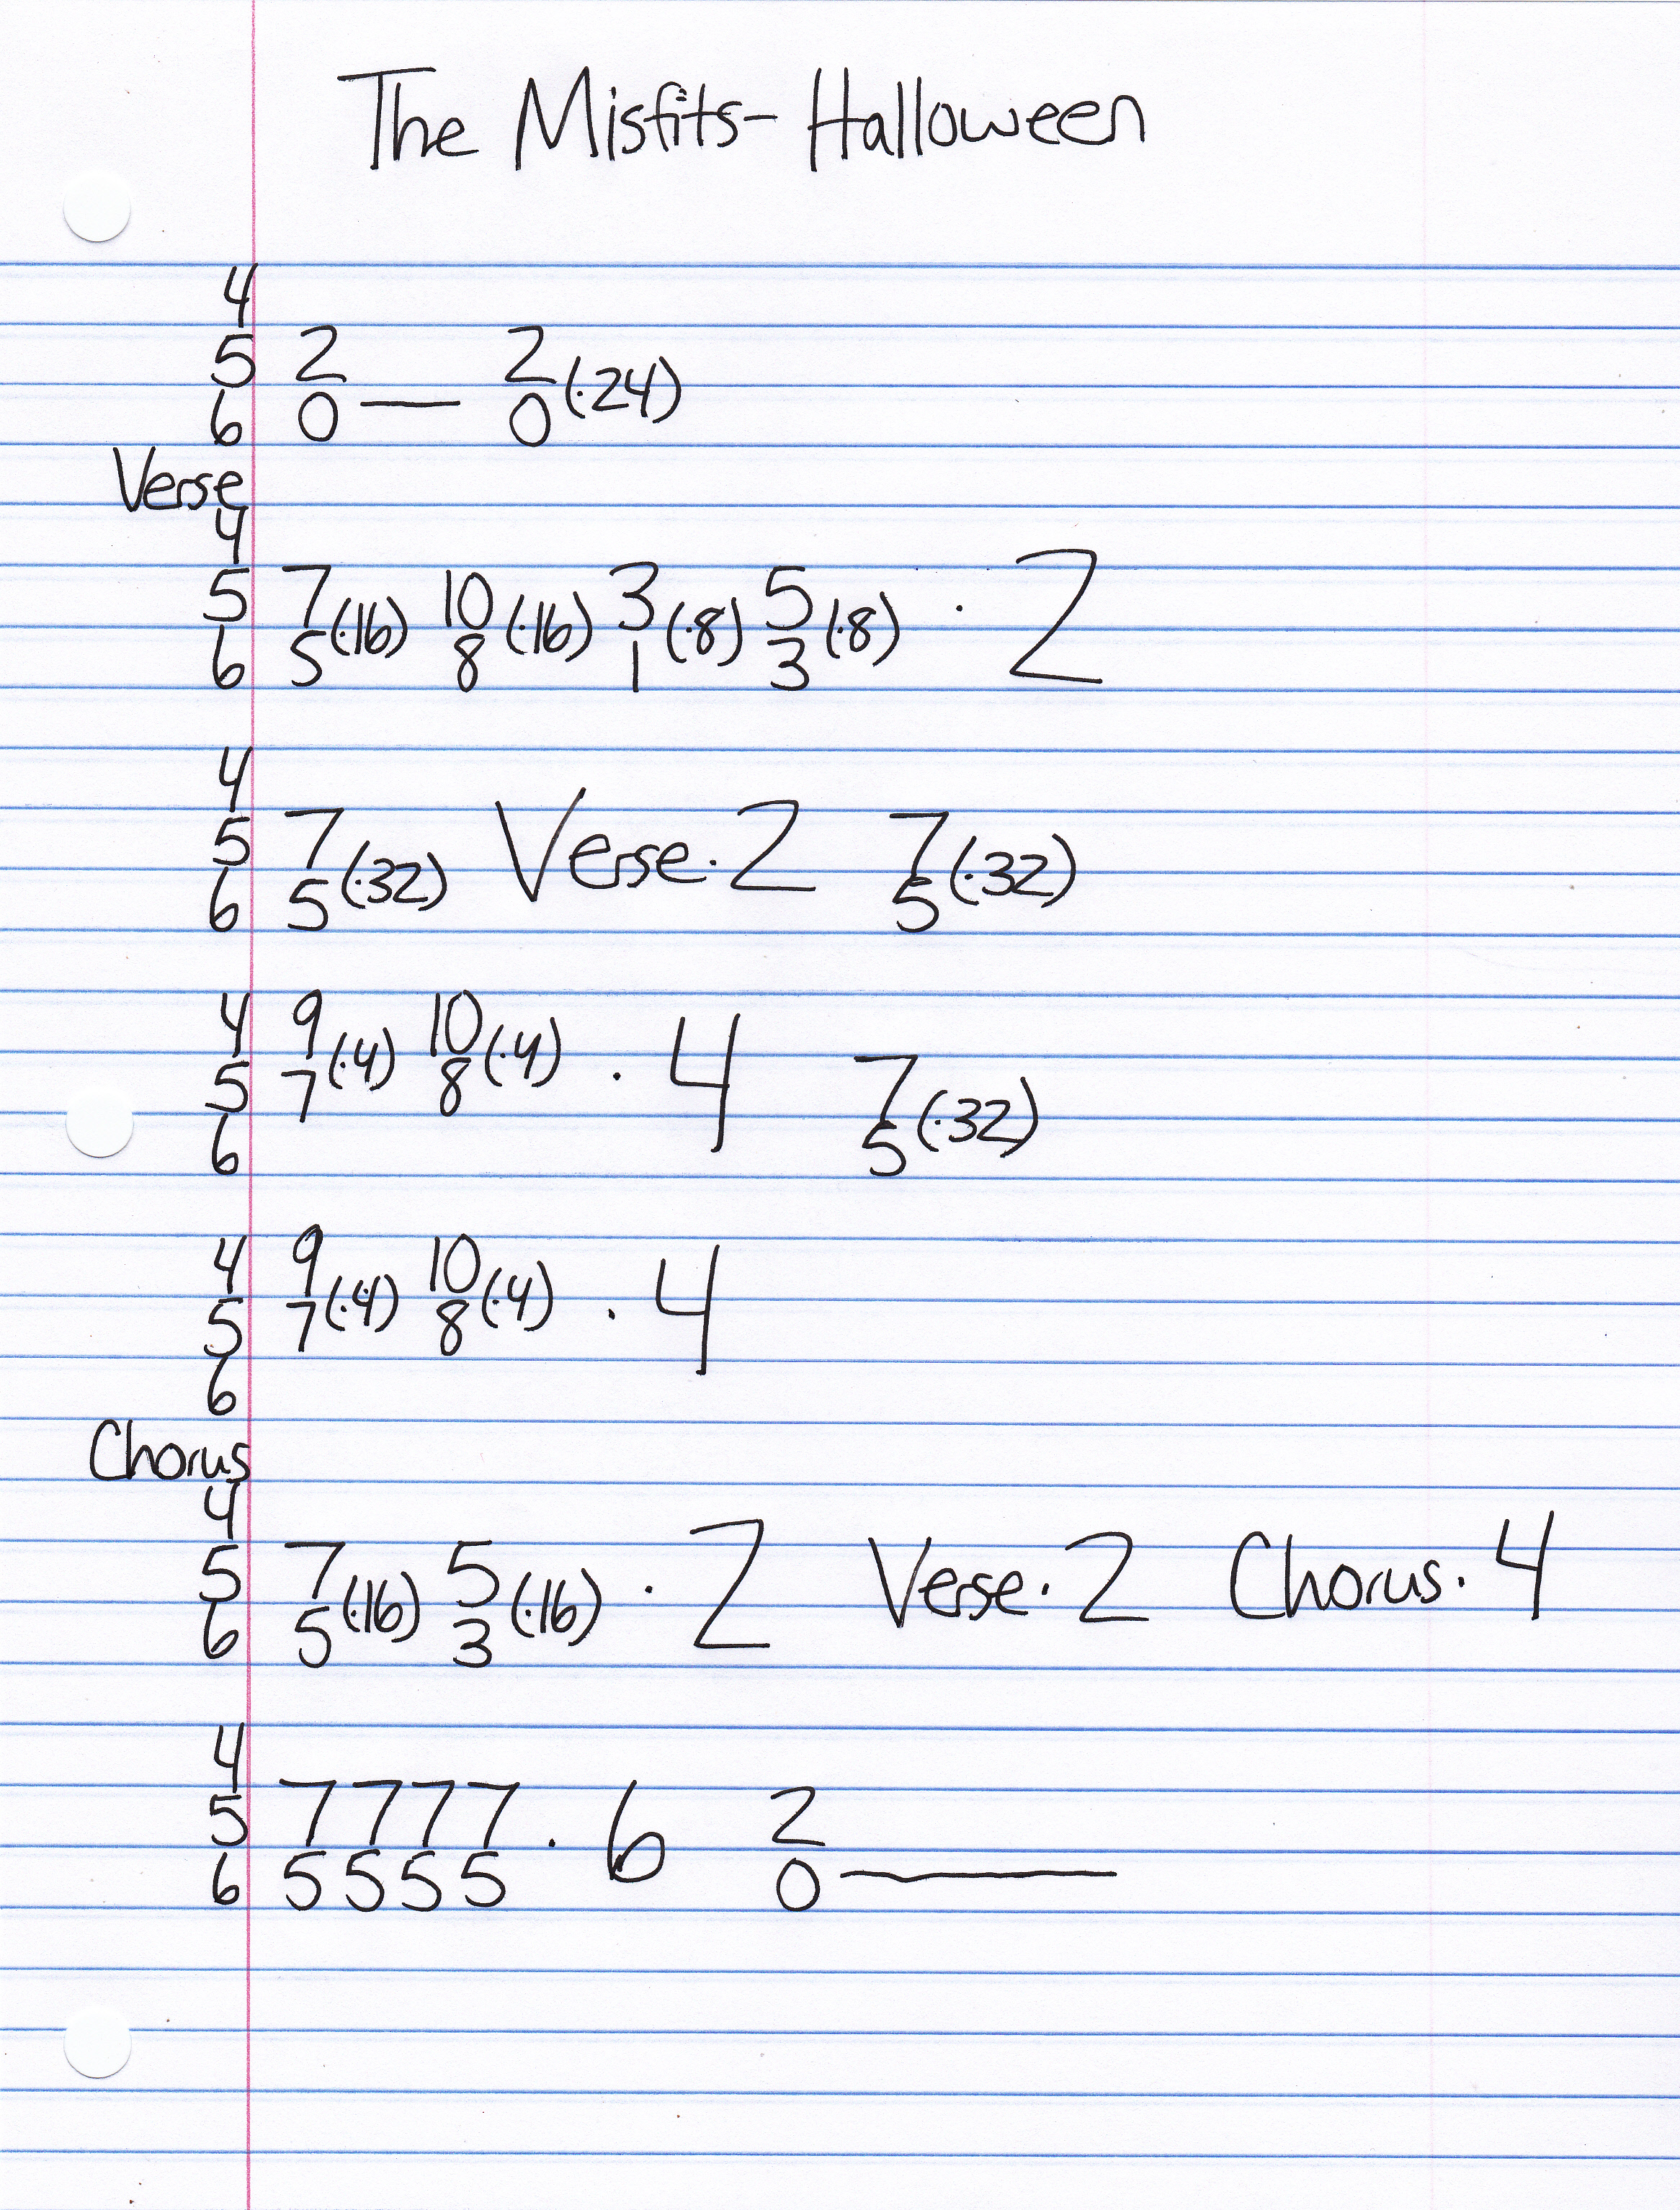 The Misfits- Halloween
4
5 2 2
6 0 — 0 (·24)
Verse
4
5 7 10 3 5
6 5 (·16) 8 (·16) 1 (·8) 3 (·8) · 2
4
5 7 7
6 5 (·32) Verse · 2 5 (·32)
4 9 10
5 7 (·4) 8 (·4) · 4 7
6 5 (·32)
4 9 10
5 7 (·4) 8 (·4) · 4
6
Chorus
4
5 7 5
6 5 (·16) 3 (·16) · 2 Verse · 2 Chorus · 4
4
5 7 7 7 7 · 6 2
6 5 5 5 5 0 —